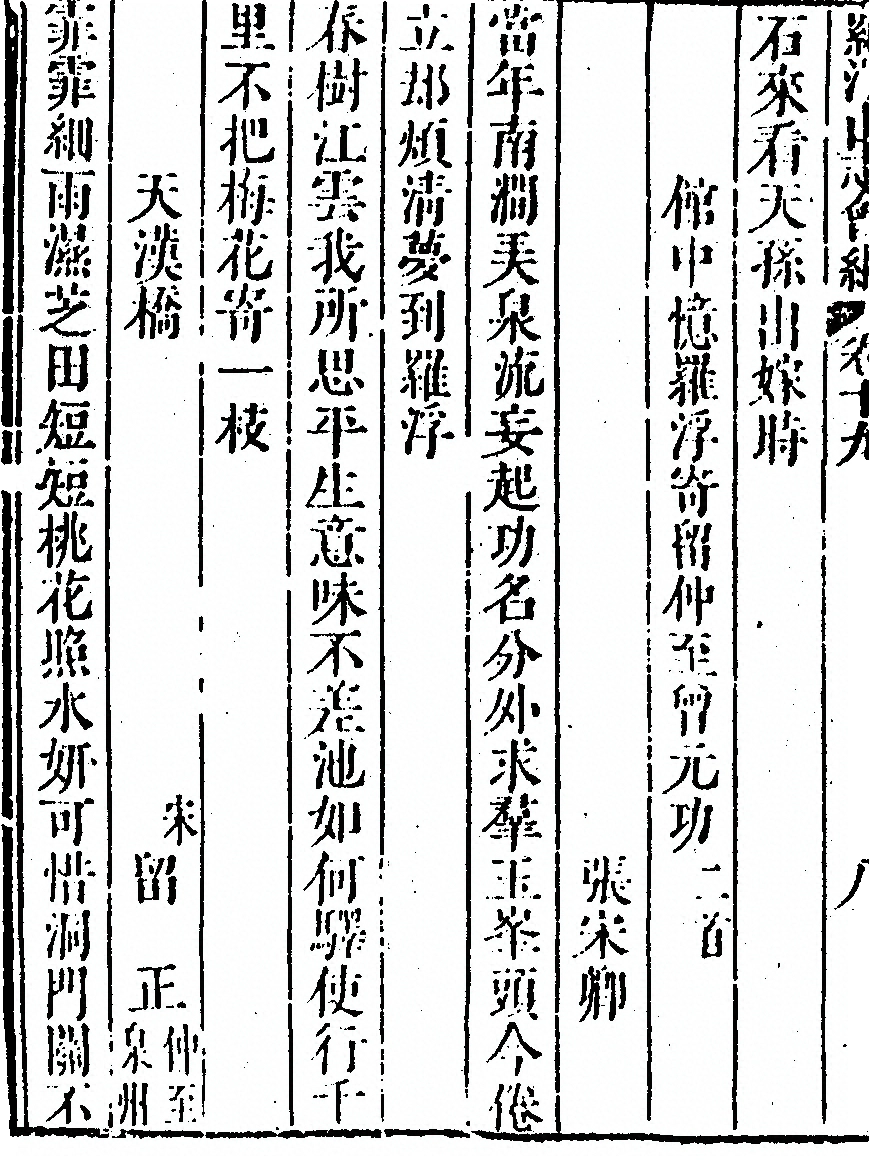 羅浮山志會編 卷十九 八
石來看天孫出嫁時
館中憶羅浮寄留仲至曾元功 二首
張宋卿
當年南澗美泉流妄起功名分外求羣玉峯頭今倦
立却煩清夢到羅浮
春樹江雲我所思平生意味不差池如何驛使行千
里不把梅花寄一枝
天漢橋 宋 留 正 仲至 泉州
霏霏細雨濕芝田短短桃花照水妍可惜洞門關不